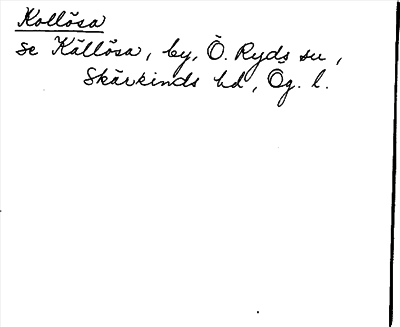 Kollösa
se Källösa, by, Ö. Ryds sn,
Skärkinds hd, Ög. l.